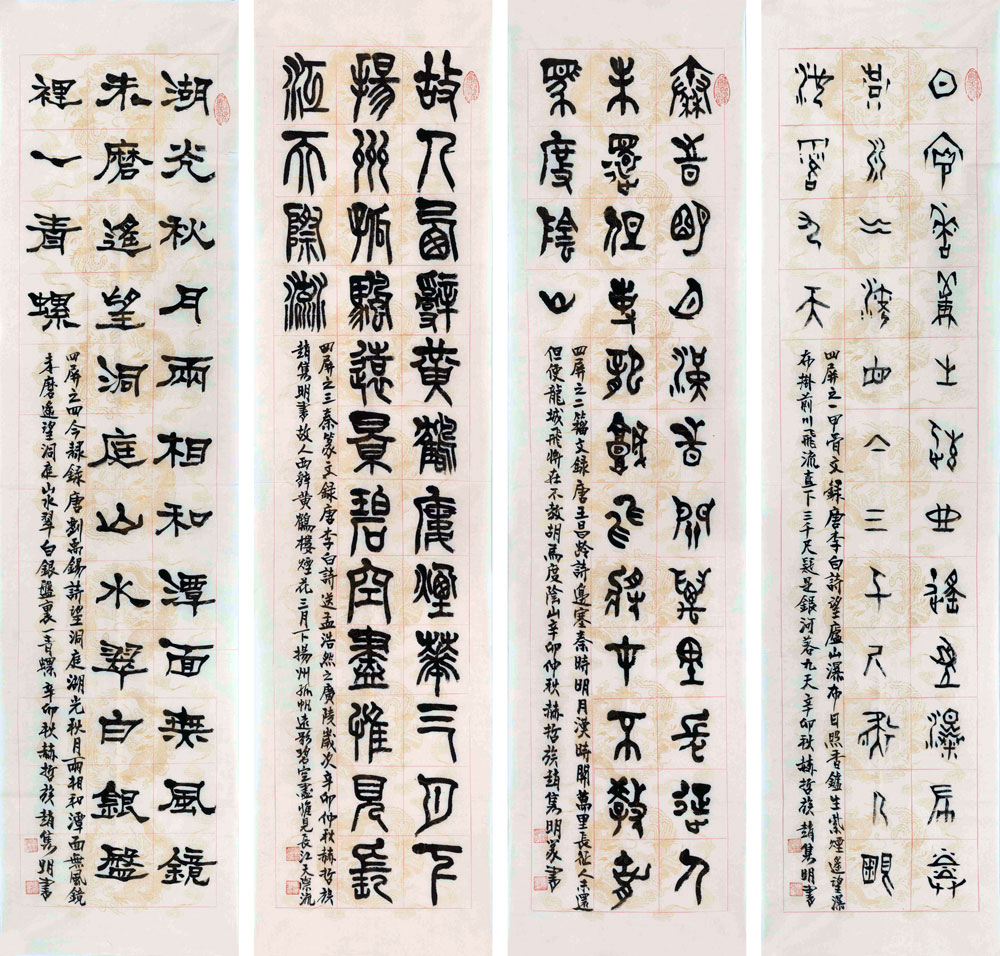 日照香鑪生紫煙遙望瀑布掛
前川飛流直下三千尺疑是銀
河落九天
四屏之一甲骨文錄唐李白詩望廬山瀑布日照香鑪生紫煙遙望瀑
布掛前川飛流直下三千尺疑是銀河落九天辛卯秋赫哲族趙雋明書
秦時明月漢時關萬里長征人
未還但使龍城飛將在不教胡
馬度陰山
四屏之二籀文錄唐王昌齡詩邊塞秦時明月漢時關萬里長征人未還
但使龍城飛將在不教胡馬度陰山辛卯仲秋赫哲族趙雋明篆書
故人西辭黃鶴樓煙華三月下
揚州孤帆遠景碧空盡惟見長
江天際流
四屏之三秦篆文錄唐李白詩送孟浩然之廣陵歲次辛卯仲秋赫哲族
趙雋明書故人西辭黃鶴樓煙花三月下揚州孤帆遠影碧空盡惟見長江天際流
湖光秋月兩相和潭面無風鏡
未磨遙望洞庭山水翠白銀盤
裡一青螺
四屏之四今隸錄唐劉禹錫詩望洞庭湖光秋月兩相和潭面無風鏡
未磨遙望洞庭山水翠白銀盤裏一青螺辛卯秋赫哲族趙雋明書